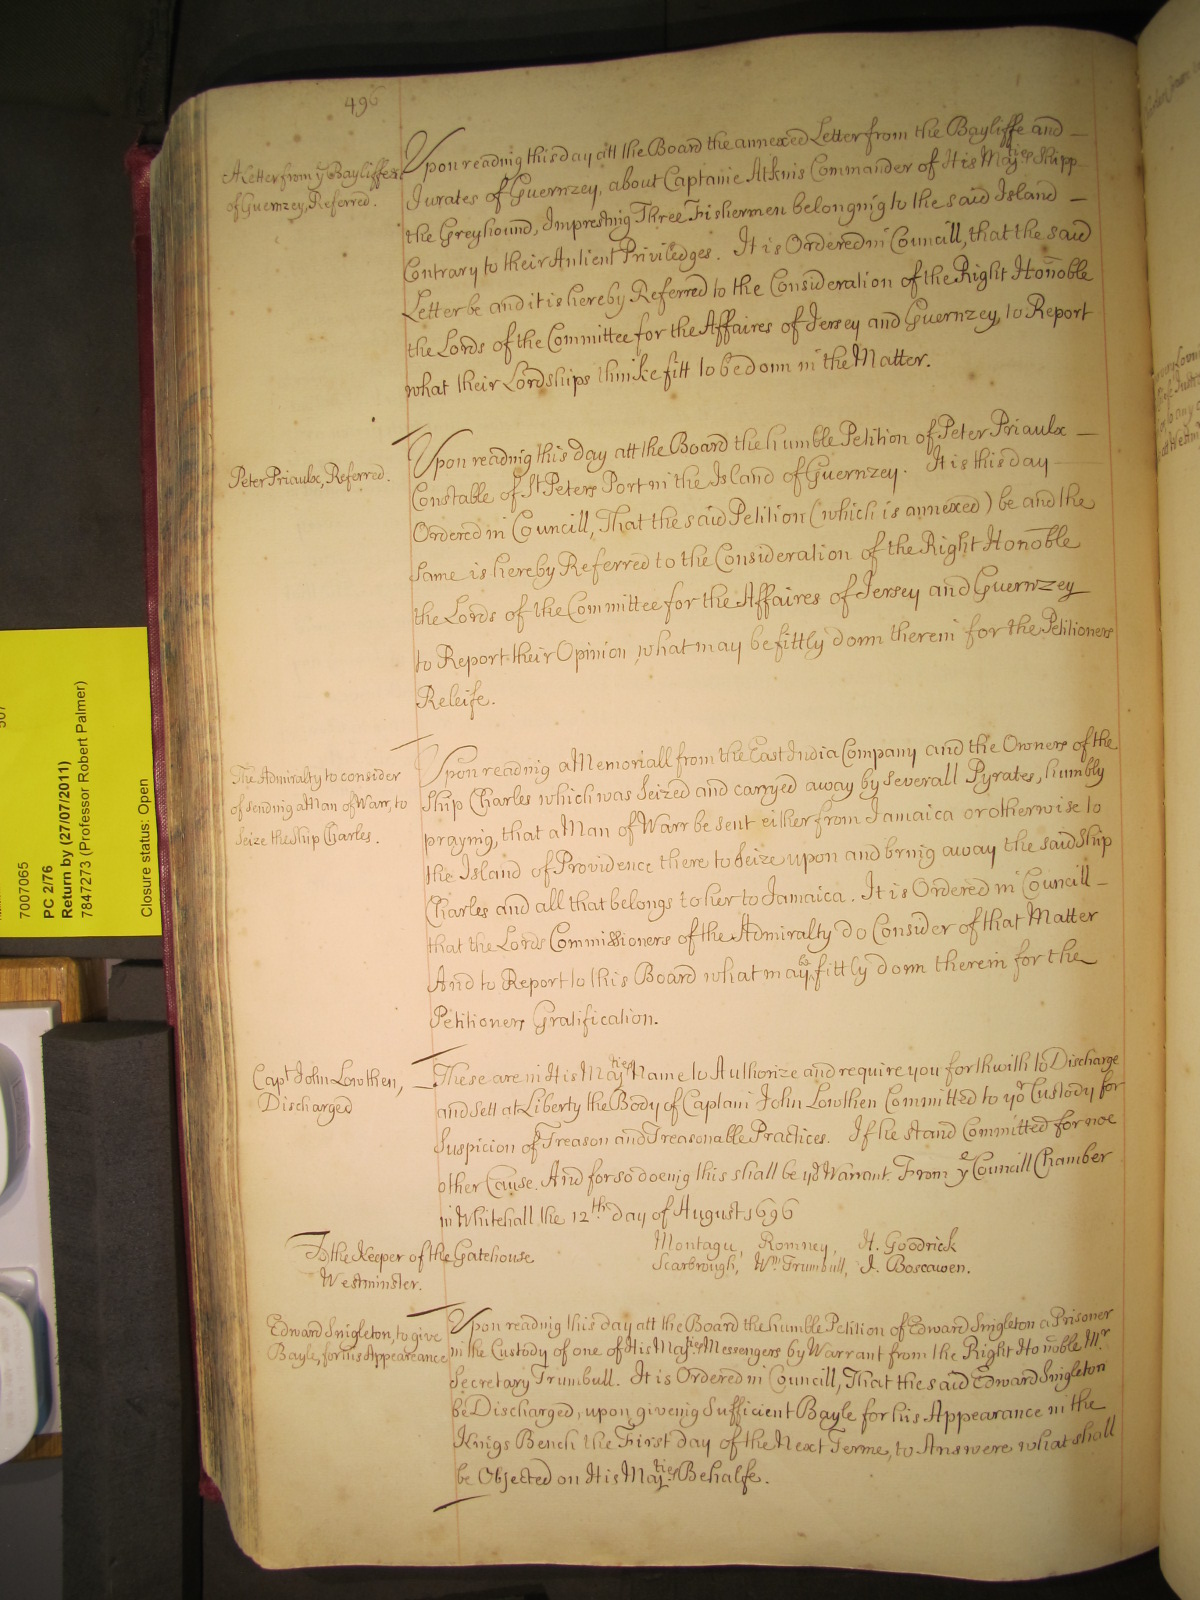 496
A Letter from yͤ Bayliffe &c
of Guernzey, Referred.
Upon reading this day att the Board the annexed Letter from the Bayliffe and
Jurates of Guernzey, about Captaine Atkins Commander of His Maties Shipp
the Greyhound, Impresting Three Fishermen belonging to the said Island
Contrary to their Antient Priviledges. It is Ordered in Councill, that the said
Letter be and it is hereby Referred to the Consideration of the Right Honoble
the Lords of the Committee for the Affaires of Jersey and Guernzey, to Report
what their Lordships thinke fitt to be donn in the Matter.
Peter Priaulx, Referred.
Upon reading this day att the Board the humble Petition of Peter Priaulx
Constable of St Peters Port in the Island of Guernzey. It is this day
Ordered in Councill, That the said Petition (which is annexed) be and the
same is hereby Referred to the Consideration of the Right Honoble
the Lords of the Committee for the Affaires of Jersey and Guernzey
to Report their Opinion what may be fittly donn therein for the Petitioners
Releife.
The Admiralty to consider
of sending a Man of Warr, to
seize the ship Charles.
Upon reading a Memoriall from the East India Company and the Owners of the
ship Charles which was seized and carryed away by severall Pyrates, humbly
praying, that a Man of Warr be sent either from Jamaica or otherwise to
the Island of Providence there to seize upon and bring away the said Ship
Charles and all that belongs to her to Jamaica. It is Ordered in Councill
that the Lords Commissioners of the Admiralty do Consider of that Matter
And to Report to this Board what may be fittly donn therein for the
Petitioners Gratification.
Capt John Lowthen,
Discharged
These are in His Maties Name to Authorize and require you forthwith to Discharge
and sett at Liberty the Body of Captain John Lowthen Committed to yor Custody for
Suspicion of Treason and Treasonable Practices. If he stand Committed for noe
other Cause. And for so doeing this shall be yor Warrant. From yͤ Councill Chamber
in Whitehall the 12th day of August 1696
To the Keeper of the Gatehouse
Westminster.
Montagu, Romney, H. Goodrick
Scarbrough, Wm Trumbull, J. Boscawen.
Edward Singleton, to give
Bayle, for his Appeareance
Upon reading this day att the Board the humble Petition of Edward Singleton a Prisoner
in the Custody of one of His Maties Messengers by Warrant from the Right Honoble Mr
Secretary Trumbull. It is Ordered in Councill, That the said Edward Singleton
be Discharged, upon giveing Sufficient Bayle for his Appearance in the
Kings Bench the First day of the Next Terme, to Answere what shall
be Objected on His Maties Behalfe.
7007065
PC 2/76
Return by (27/07/2011)
7847273 (Professor Robert Palmer)
Closure status: Open